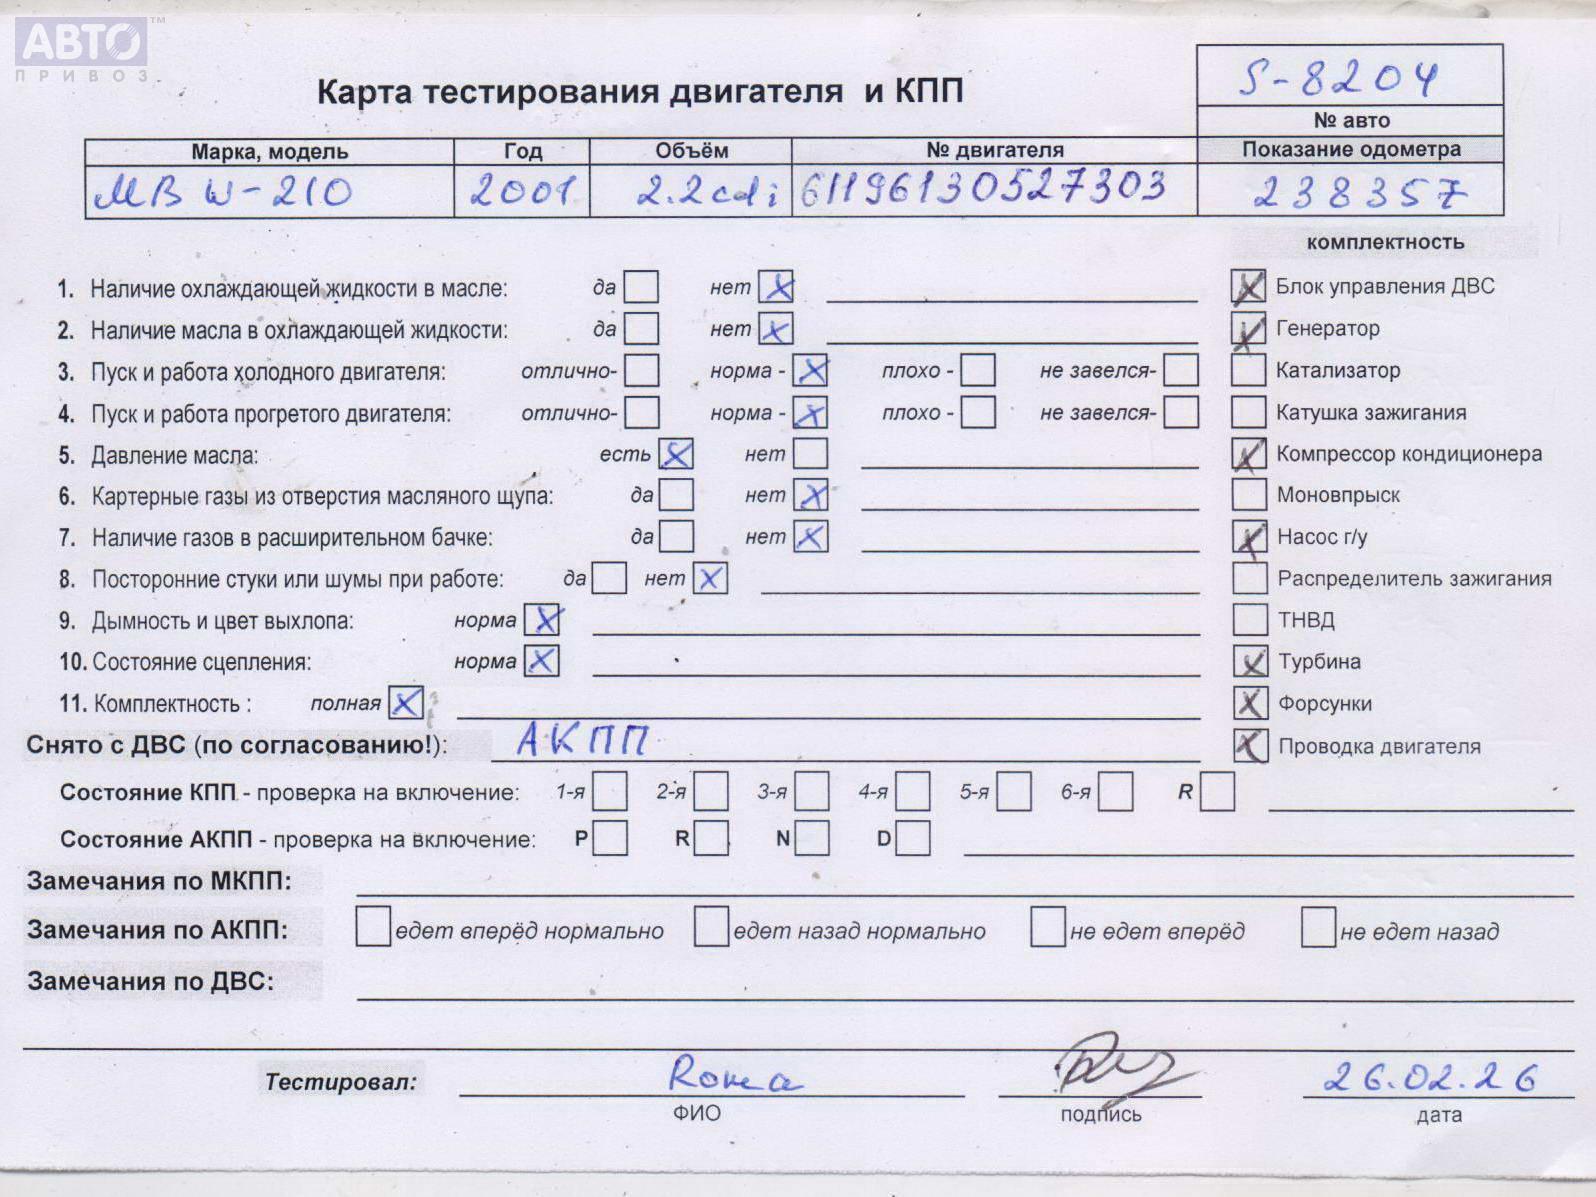 АВТО ™
ПРИВОЗ
S-8204
Карта тестирования двигателя и КПП
№ авто
Марка, модель Год Объём № двигателя Показание одометра
MB W-210 2001 2.2cdi 61196130527303 238357
комплектность
1. Наличие охлаждающей жидкости в масле: да нет X X Блок управления ДВС
2. Наличие масла в охлаждающей жидкости: да нет X X Генератор
3. Пуск и работа холодного двигателя: отлично- норма - X плохо - не завелся- Катализатор
4. Пуск и работа прогретого двигателя: отлично- норма - X плохо - не завелся- Катушка зажигания
5. Давление масла: есть X нет X Компрессор кондиционера
6. Картерные газы из отверстия масляного щупа: да нет X Моновпрыск
7. Наличие газов в расширительном бачке: да нет X X Насос г/у
8. Посторонние стуки или шумы при работе: да нет X Распределитель зажигания
9. Дымность и цвет выхлопа: норма X ТНВД
10. Состояние сцепления: норма X X Турбина
11. Комплектность : полная X X Форсунки
Снято с ДВС (по согласованию!): АКПП X Проводка двигателя
Состояние КПП - проверка на включение: 1-я 2-я 3-я 4-я 5-я 6-я R
Состояние АКПП - проверка на включение: P R N D
Замечания по МКПП:
Замечания по АКПП: едет вперёд нормально едет назад нормально не едет вперёд не едет назад
Замечания по ДВС:
Тестировал: Рома 26.02.26
ФИО подпись дата